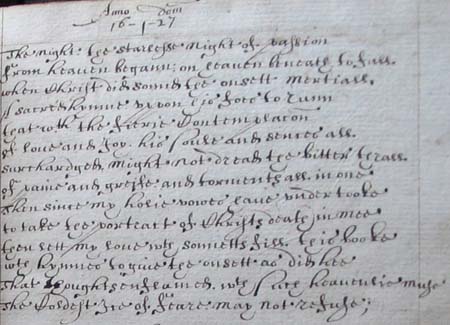 Anno dom
16-1-27
The night the starlesse night of passion
From heaven begann: on heaven beneath to fall.
when Christ did sound the onsett Mertiall.
A sacred hymne upon his foes to runn
that wth the fierie Contemplacon
of love and Joy. his soule and sences all.
surchardged might not dread the bitter thrall.
of paine and greife and torments all in one
Then since my holie vowes have undertooke
to take the portract of Christs death in mee
then lett my love wth sonetts fill this booke
wth hymnes to give the onsett as did hee
That thoughts enflamed wth such heavenlie muse
The Coldest Ice of feare may not refuse;